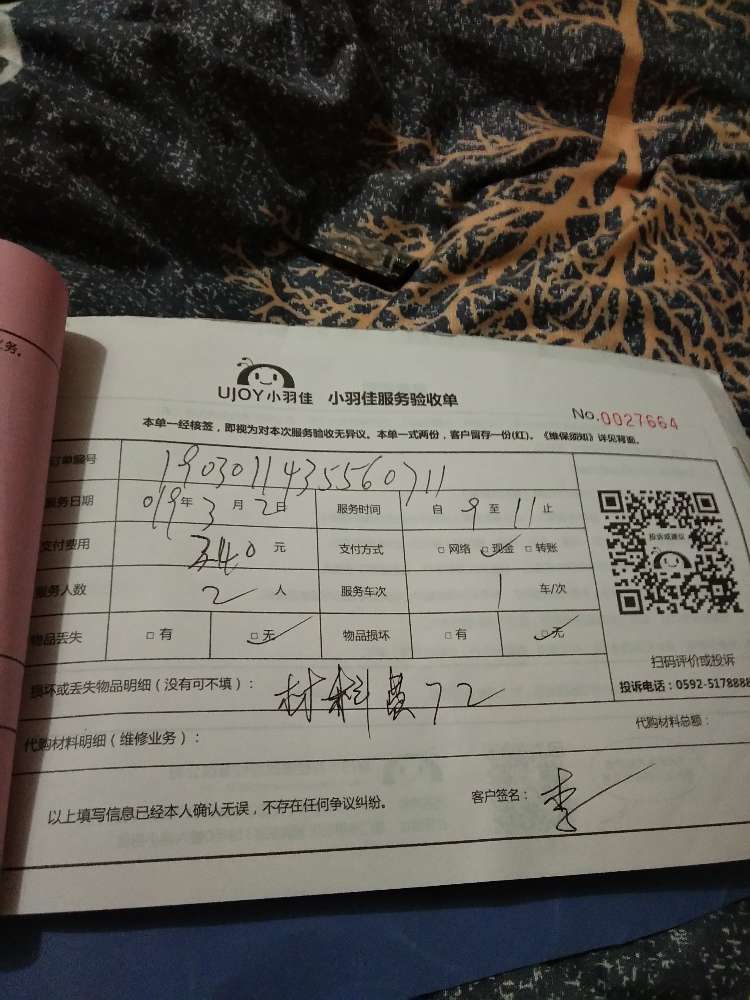 务。
UJOY小羽佳 小羽佳服务验收单
No.0027664
本单一经核签，即视为对本次服务验收无异议。本单一式两份，客户留存一份(红)。《维保须知》详见背面。
订单编号 1903011435560711
服务日期 019年3月2日 服务时间 自9至11止
投诉或建议
支付费用 340元 支付方式 □网络 □现金 □转账
服务人数 2人 服务车次 1车/次
物品丢失 □有 □无 物品损坏 □有 □无
扫码评价或投诉
投诉电话：0592-5178888
损坏或丢失物品明细（没有可不填）： 材料费72
代购材料明细（维修业务）： 代购材料总额：
以上填写信息已经本人确认无误，不存在任何争议纠纷。 客户签名：